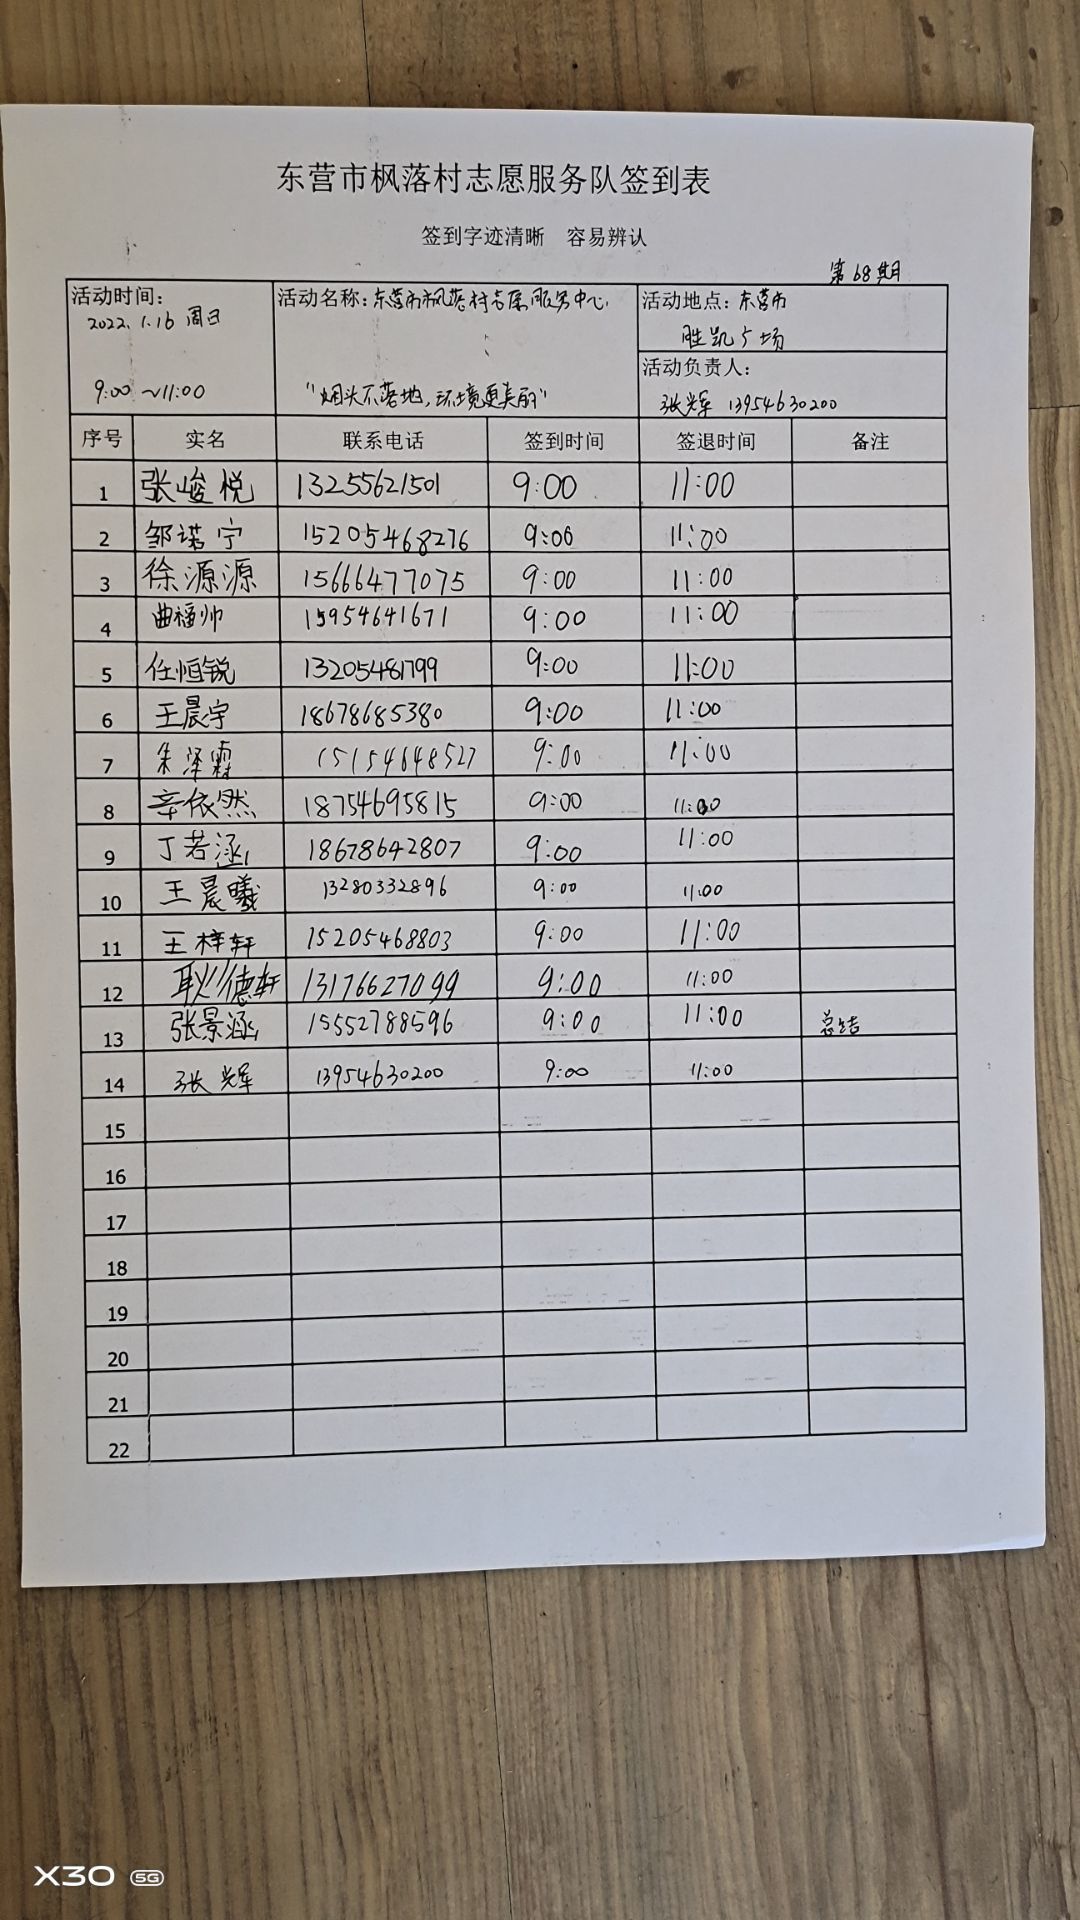 东营市枫落村志愿服务队签到表
签到字迹清晰 容易辨认
第68期
活动时间： 活动名称：东营市枫落村志愿服务中心 活动地点：东营市
2022.1.16 周日 胜凯广场
活动负责人：
9:00 ~11:00 "烟头不落地，环境更美丽" 张辉 13954630200
序号 实名 联系电话 签到时间 签退时间 备注
1 张峻悦 13255621501 9:00 11:00
2 邹诺宁 15205468276 9:00 11:00
3 徐源源 15666477075 9:00 11:00
4 曲福帅 15954641671 9:00 11:00
5 任恒锐 13205481799 9:00 11:00
6 王晨宇 18678685380 9:00 11:00
7 朱泽霖 15154648527 9:00 11:00
8 辛依然 18754695815 9:00 11:00
9 丁若涵 18678642807 9:00 11:00
10 王晨曦 13280332896 9:00 11:00
11 王梓轩 15205468803 9:00 11:00
12 耿德轩 13176627099 9:00 11:00
13 张景涵 15552788596 9:00 11:00 总结
14 张辉 13954630200 9:00 11:00
15
16
17
18
19
20
21
22
X30 5G